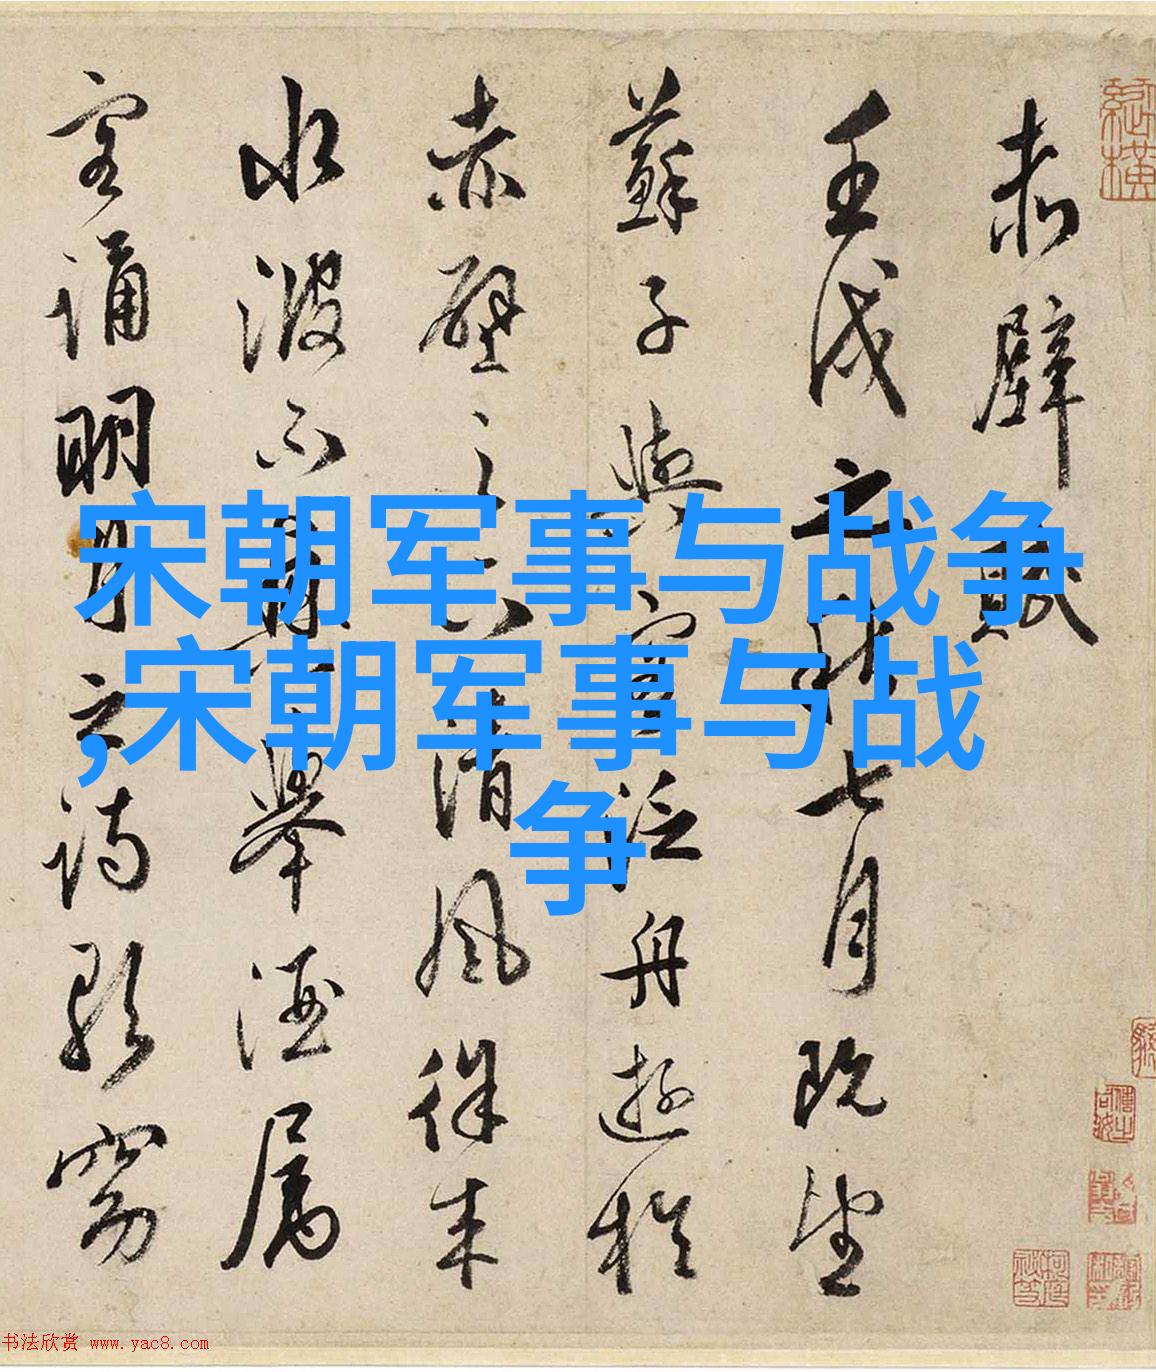 赤壁賦
壬戌之秋七月既望
蘇子與客泛舟遊於
赤壁之下清風徐来
水波不興舉酒属
客誦明月之詩歌窈
宋朝军事与战争
,宋朝军事与战
争
书法欣赏 www.yac8.com